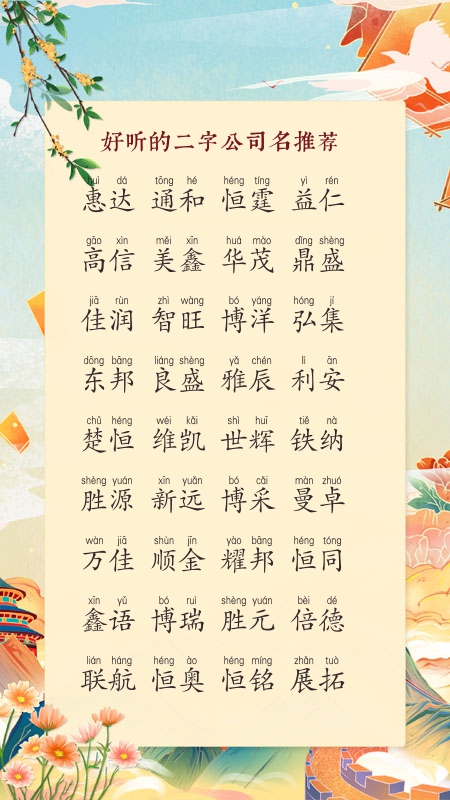 好听的二字公司名推荐
huì dá tōng hé héng tíng yì rén
惠达 通和 恒霆 益仁
gāo xìn měi xīn huá mào dǐng shèng
高信 美鑫 华茂 鼎盛
jiā rùn zhì wàng bó yáng hóng jí
佳润 智旺 博洋 弘集
dōng bāng liáng shèng yǎ chén lì ān
东邦 良盛 雅辰 利安
chǔ héng wéi kǎi shì huī tiě nà
楚恒 维凯 世辉 铁纳
shèng yuán xīn yuǎn bó cǎi màn zhuó
胜源 新远 博采 曼卓
wàn jiā shùn jīn yào bāng héng tóng
万佳 顺金 耀邦 恒同
xīn yǔ bó ruì shèng yuán bèi dé
鑫语 博瑞 胜元 倍德
lián háng héng ào héng míng zhǎn tuò
联航 恒奥 恒铭 展拓